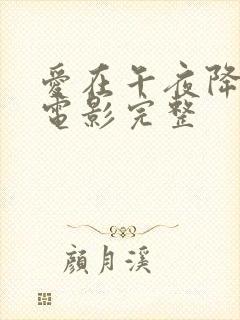 愛在午夜降
電影完整
顔月溪